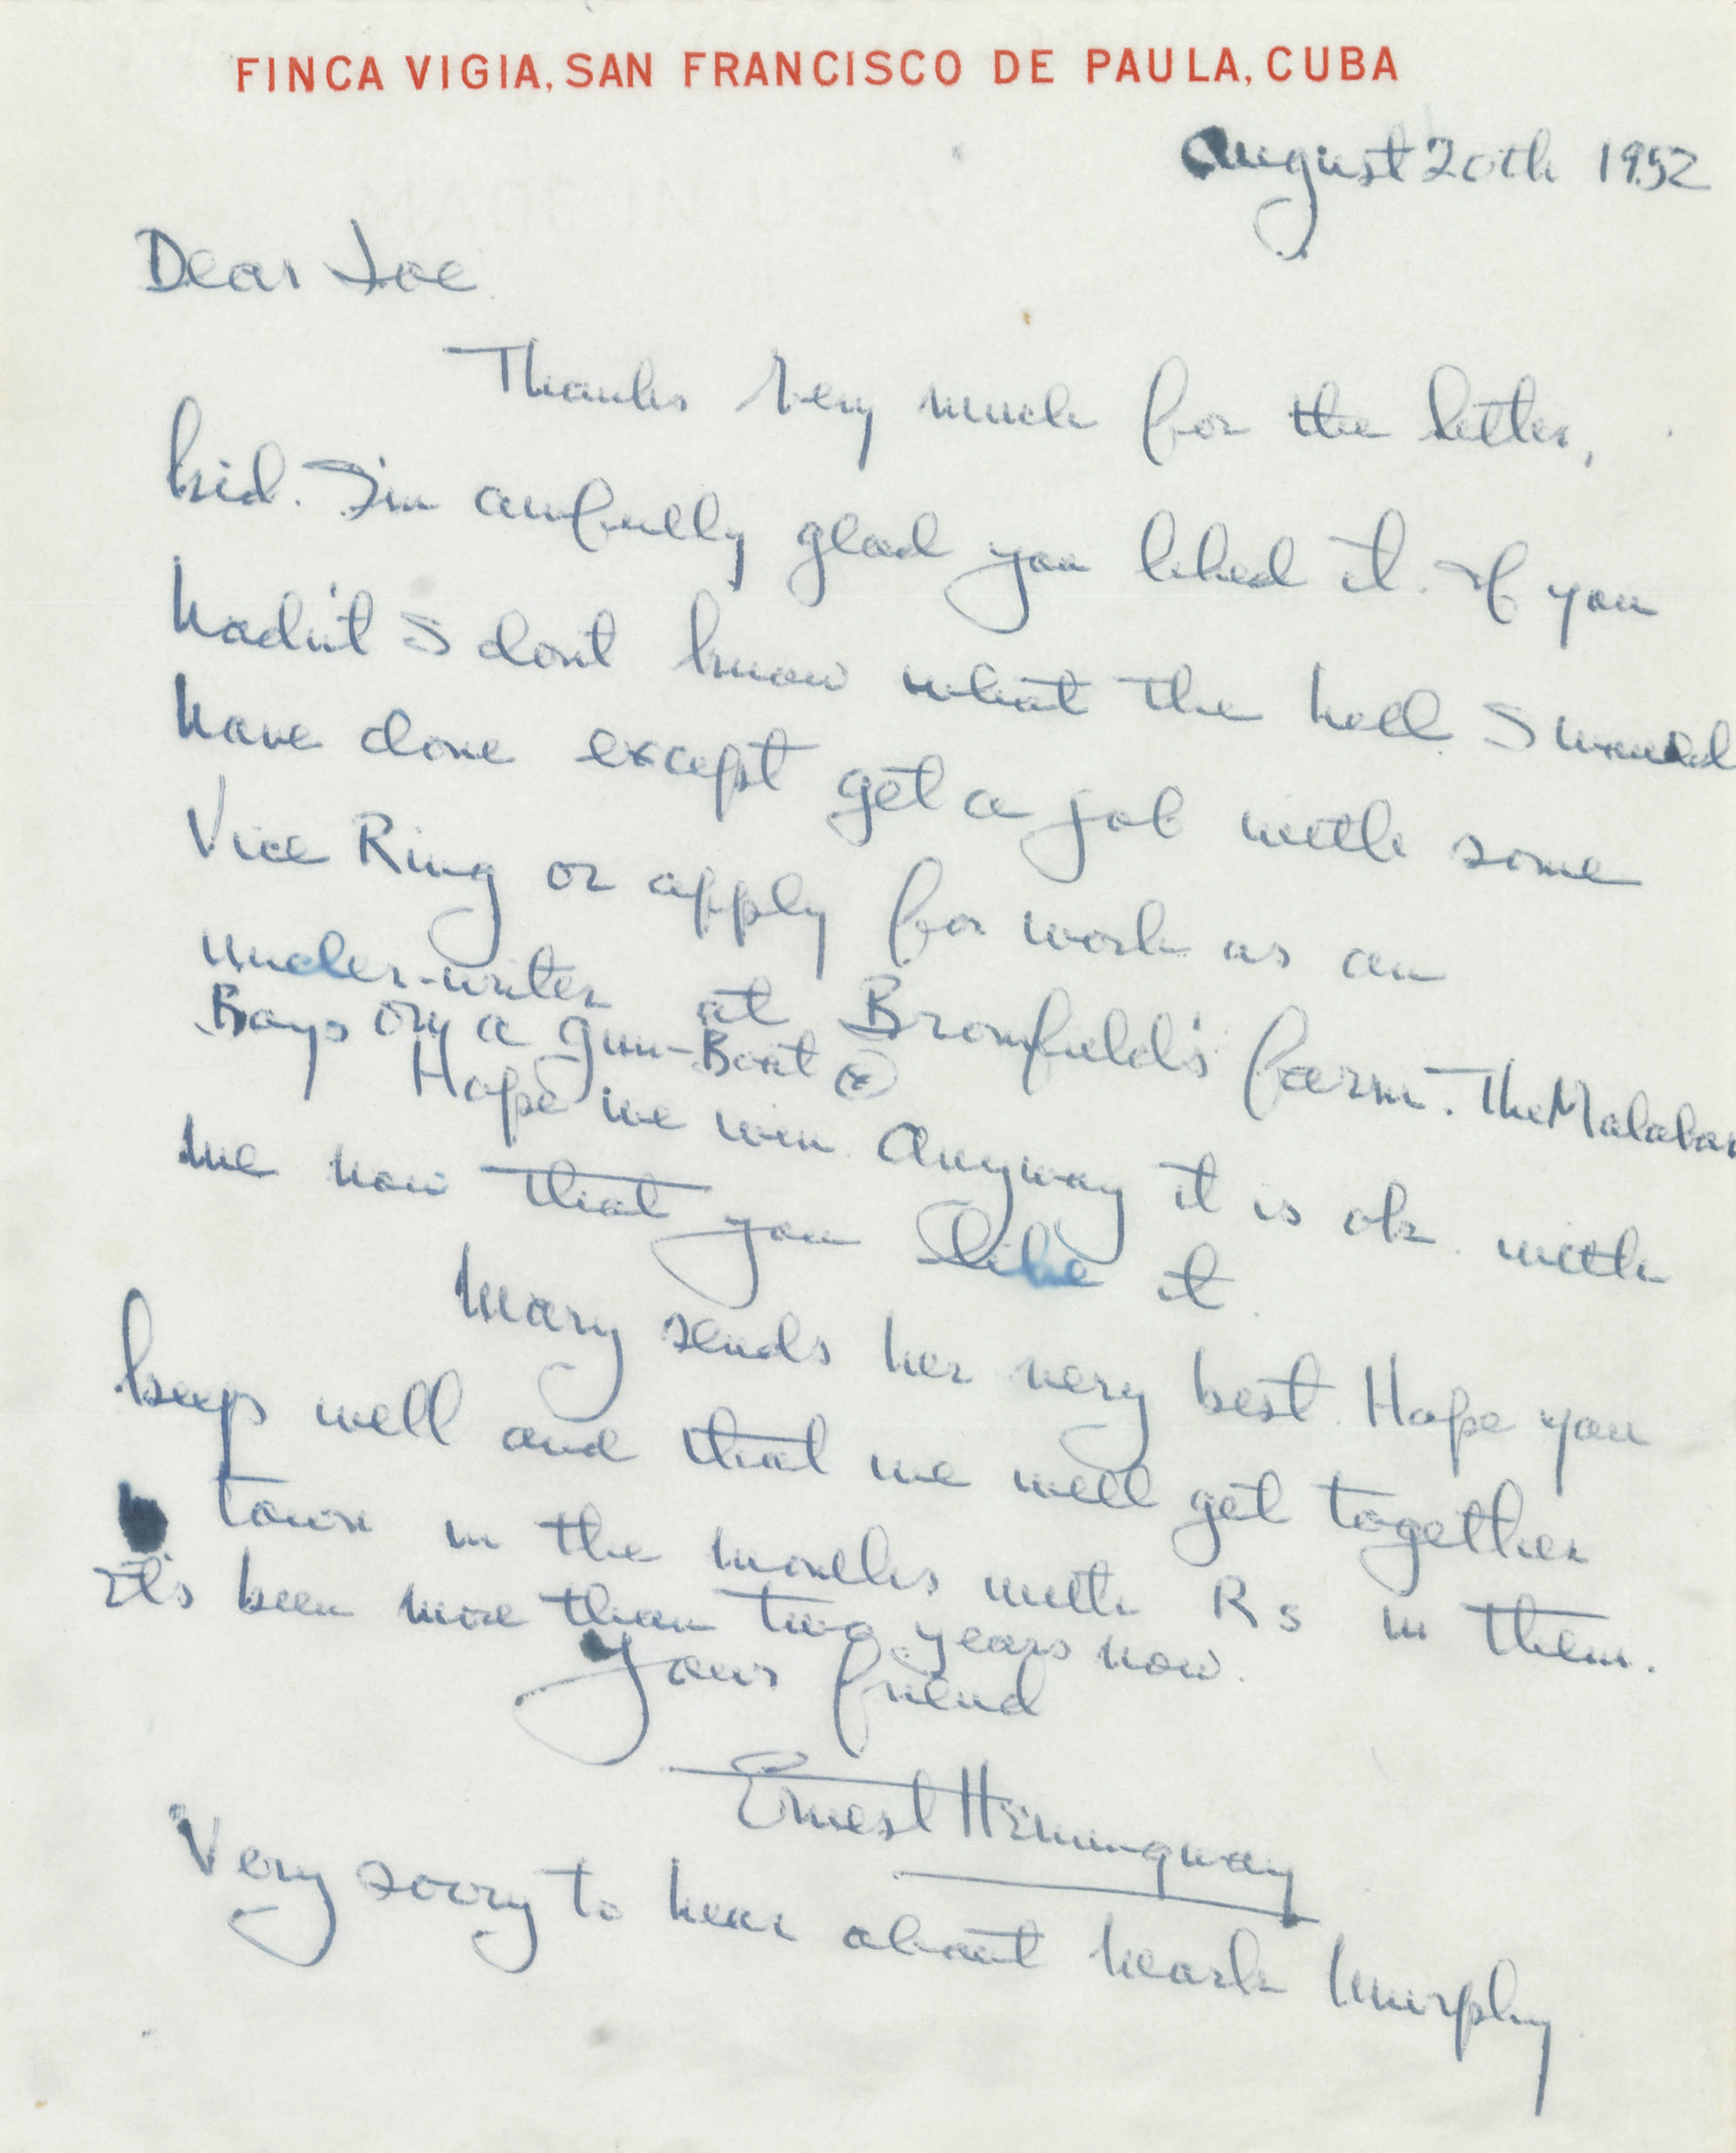 FINCA VIGIA, SAN FRANCISCO DE PAULA, CUBA
August 20th 1952
Dear Joe
Thanks very much for the letter,
kid. I'm awfully glad you liked it. If you
hadn't I dont know what the hell I would
have done except get a job with some
Vice Ring or apply for work as an
under-writer at Bromfield's farm. The Malabar
Boys on a gun-Boat
Hope we win. Anyway it is ok with
me now that you like it.
Mary sends her very best. Hope you
keep well and that we will get together
town in the months with Rs in them.
It's been more than two years now.
Your friend
Ernest Hemingway
Very sorry to hear about Mark Murphy.